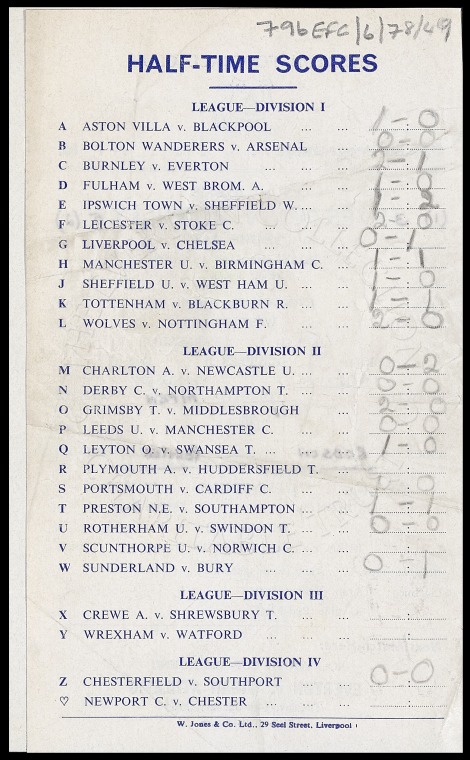 796EFC/6/78/49
HALF-TIME SCORES
LEAGUE—DIVISION I
A ASTON VILLA v. BLACKPOOL ... ... 1-0
B BOLTON WANDERERS v. ARSENAL ... 0-0
C BURNLEY v. EVERTON ... ... 2-1
D FULHAM v. WEST BROM. A. ... ... 1-0
E IPSWICH TOWN v. SHEFFIELD W. ... ... 1-2
F LEICESTER v. STOKE C. ... ... 0
G LIVERPOOL v. CHELSEA ... ... 0-1
H MANCHESTER U. v. BIRMINGHAM C. ... 1-1
J SHEFFIELD U. v. WEST HAM U. ... ... 1-0
K TOTTENHAM v. BLACKBURN R. ... ... 1-1
L WOLVES v. NOTTINGHAM F. ... ... 2-0
LEAGUE—DIVISION II
M CHARLTON A. v. NEWCASTLE U. ... ... 0-2
N DERBY C. v. NORTHAMPTON T. ... ... 0-0
O GRIMSBY T. v. MIDDLESBROUGH ... 2-0
P LEEDS U. v. MANCHESTER C. ... ... 0
Q LEYTON O. v. SWANSEA T. ... ... ... 1-0
R PLYMOUTH A. v. HUDDERSFIELD T. ...
S PORTSMOUTH v. CARDIFF C. ... ... 0
T PRESTON N.E. v. SOUTHAMPTON ... ... 1-1
U ROTHERHAM U. v. SWINDON T. ... ... 0-0
V SCUNTHORPE U. v. NORWICH C. ... ...
W SUNDERLAND v. BURY ... ... ... 0-1
LEAGUE—DIVISION III
X CREWE A. v. SHREWSBURY T. ... ...
Y WREXHAM v. WATFORD ... ... ...
LEAGUE—DIVISION IV
Z CHESTERFIELD v. SOUTHPORT ... ... 0-0
♡ NEWPORT C. v. CHESTER ... ... ...
W. Jones & Co. Ltd., 29 Seel Street, Liverpool 1